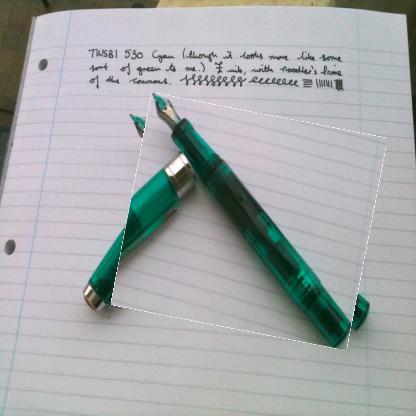 TWSBI 530 Cyan (though it looks more like some
sort of green to me.) F nib, with Noodler's
of the